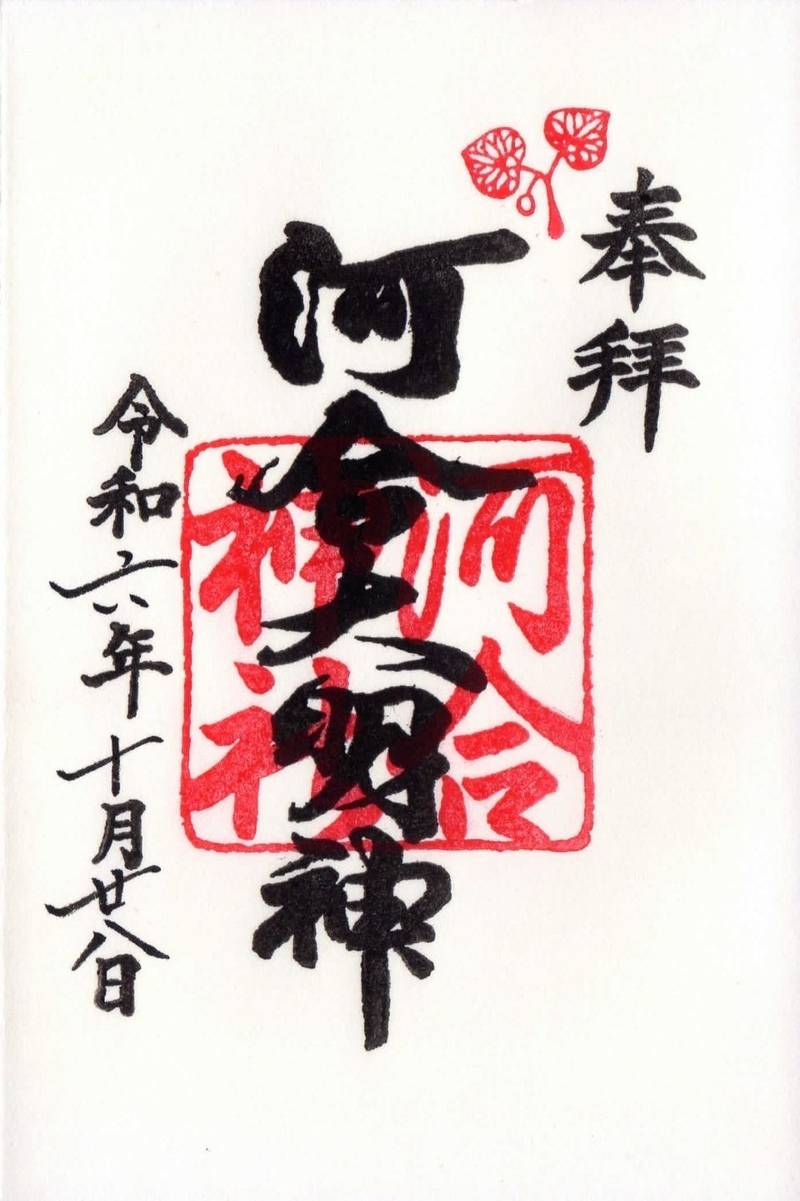 奉拝
河合大明神
河合
神社
令和六年十月廿八日